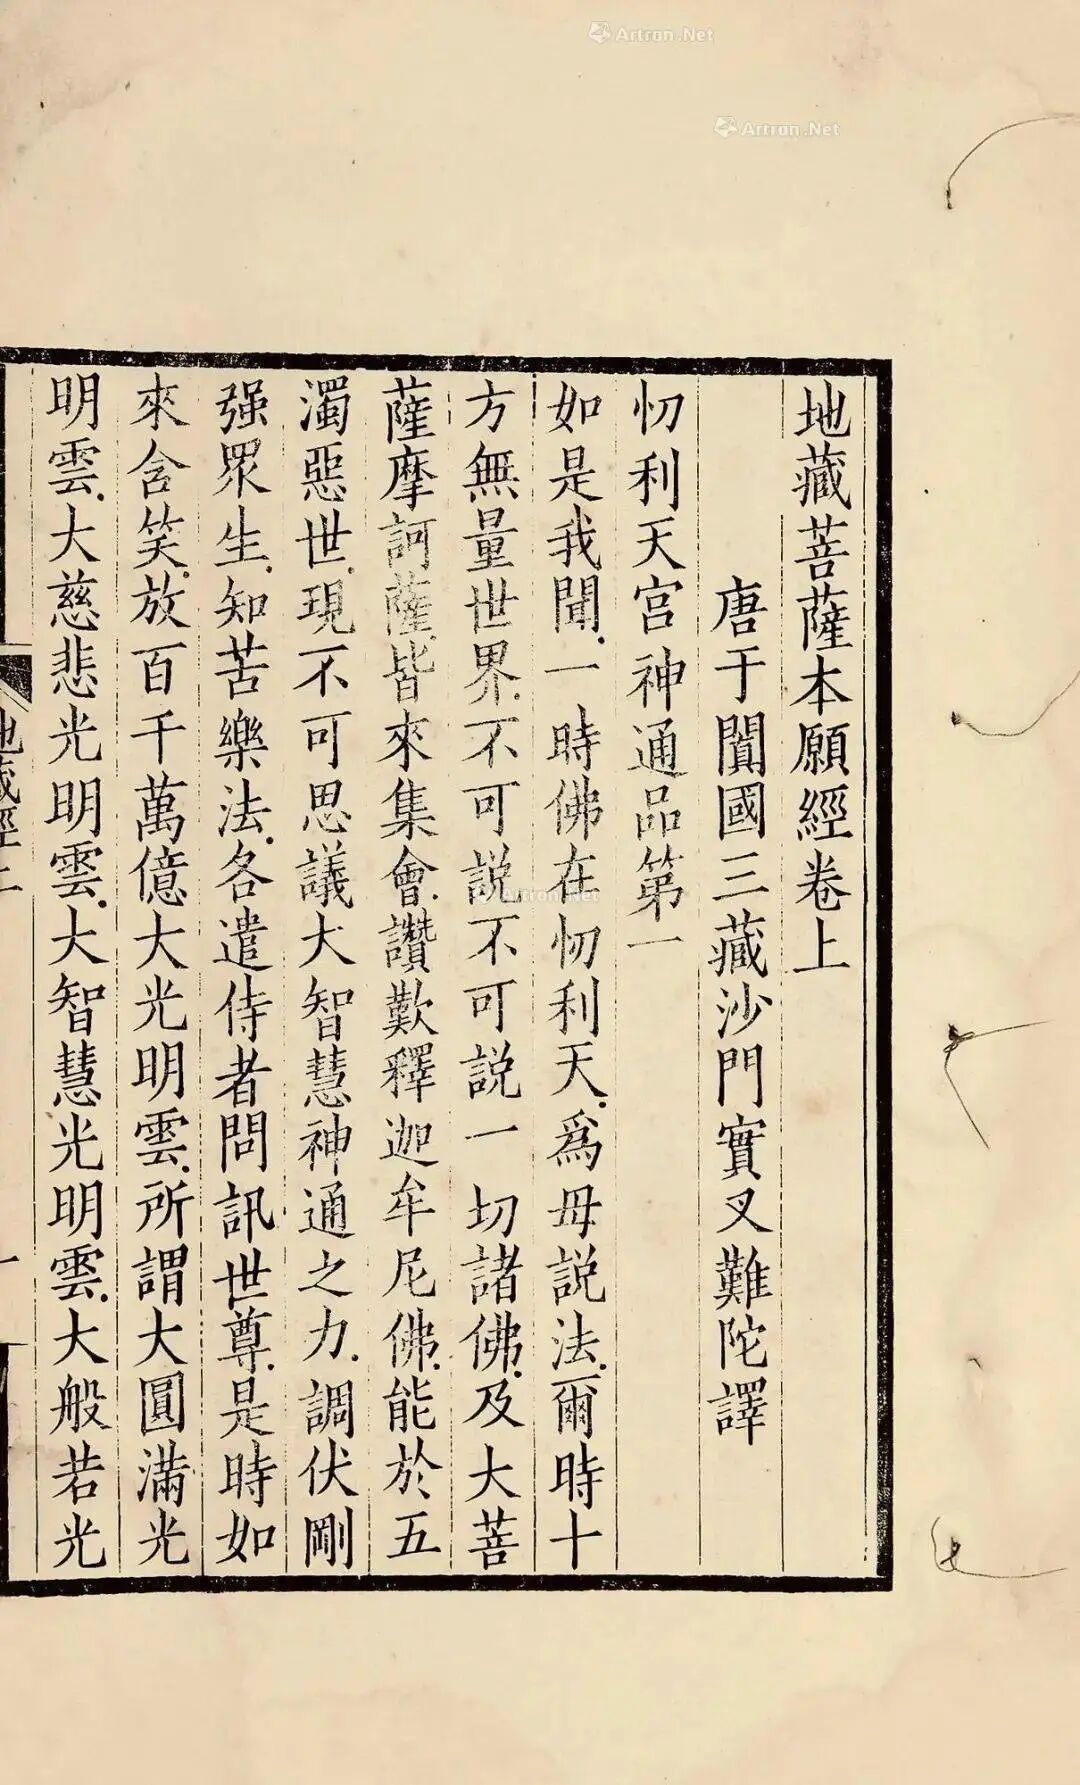 地藏菩薩本願經卷上
唐于闐國三藏沙門實叉難陀譯
忉利天宮神通品第一
如是我聞.一時佛在忉利天.爲母説法.爾時十
方無量世界.不可説不可説一切諸佛.及大菩
薩摩訶薩.皆來集會.讚歎釋迦牟尼佛.能於五
濁惡世.現不可思議大智慧神通之力.調伏剛
强眾生.知苦樂法.各遣侍者問訊世尊.是時如
來含笑.放百千萬億大光明雲.所謂大圓滿光
明雲.大慈悲光明雲.大智慧光明雲.大般若光
地藏經上
一
Artron.Net
Artron.Net
Artron.Net